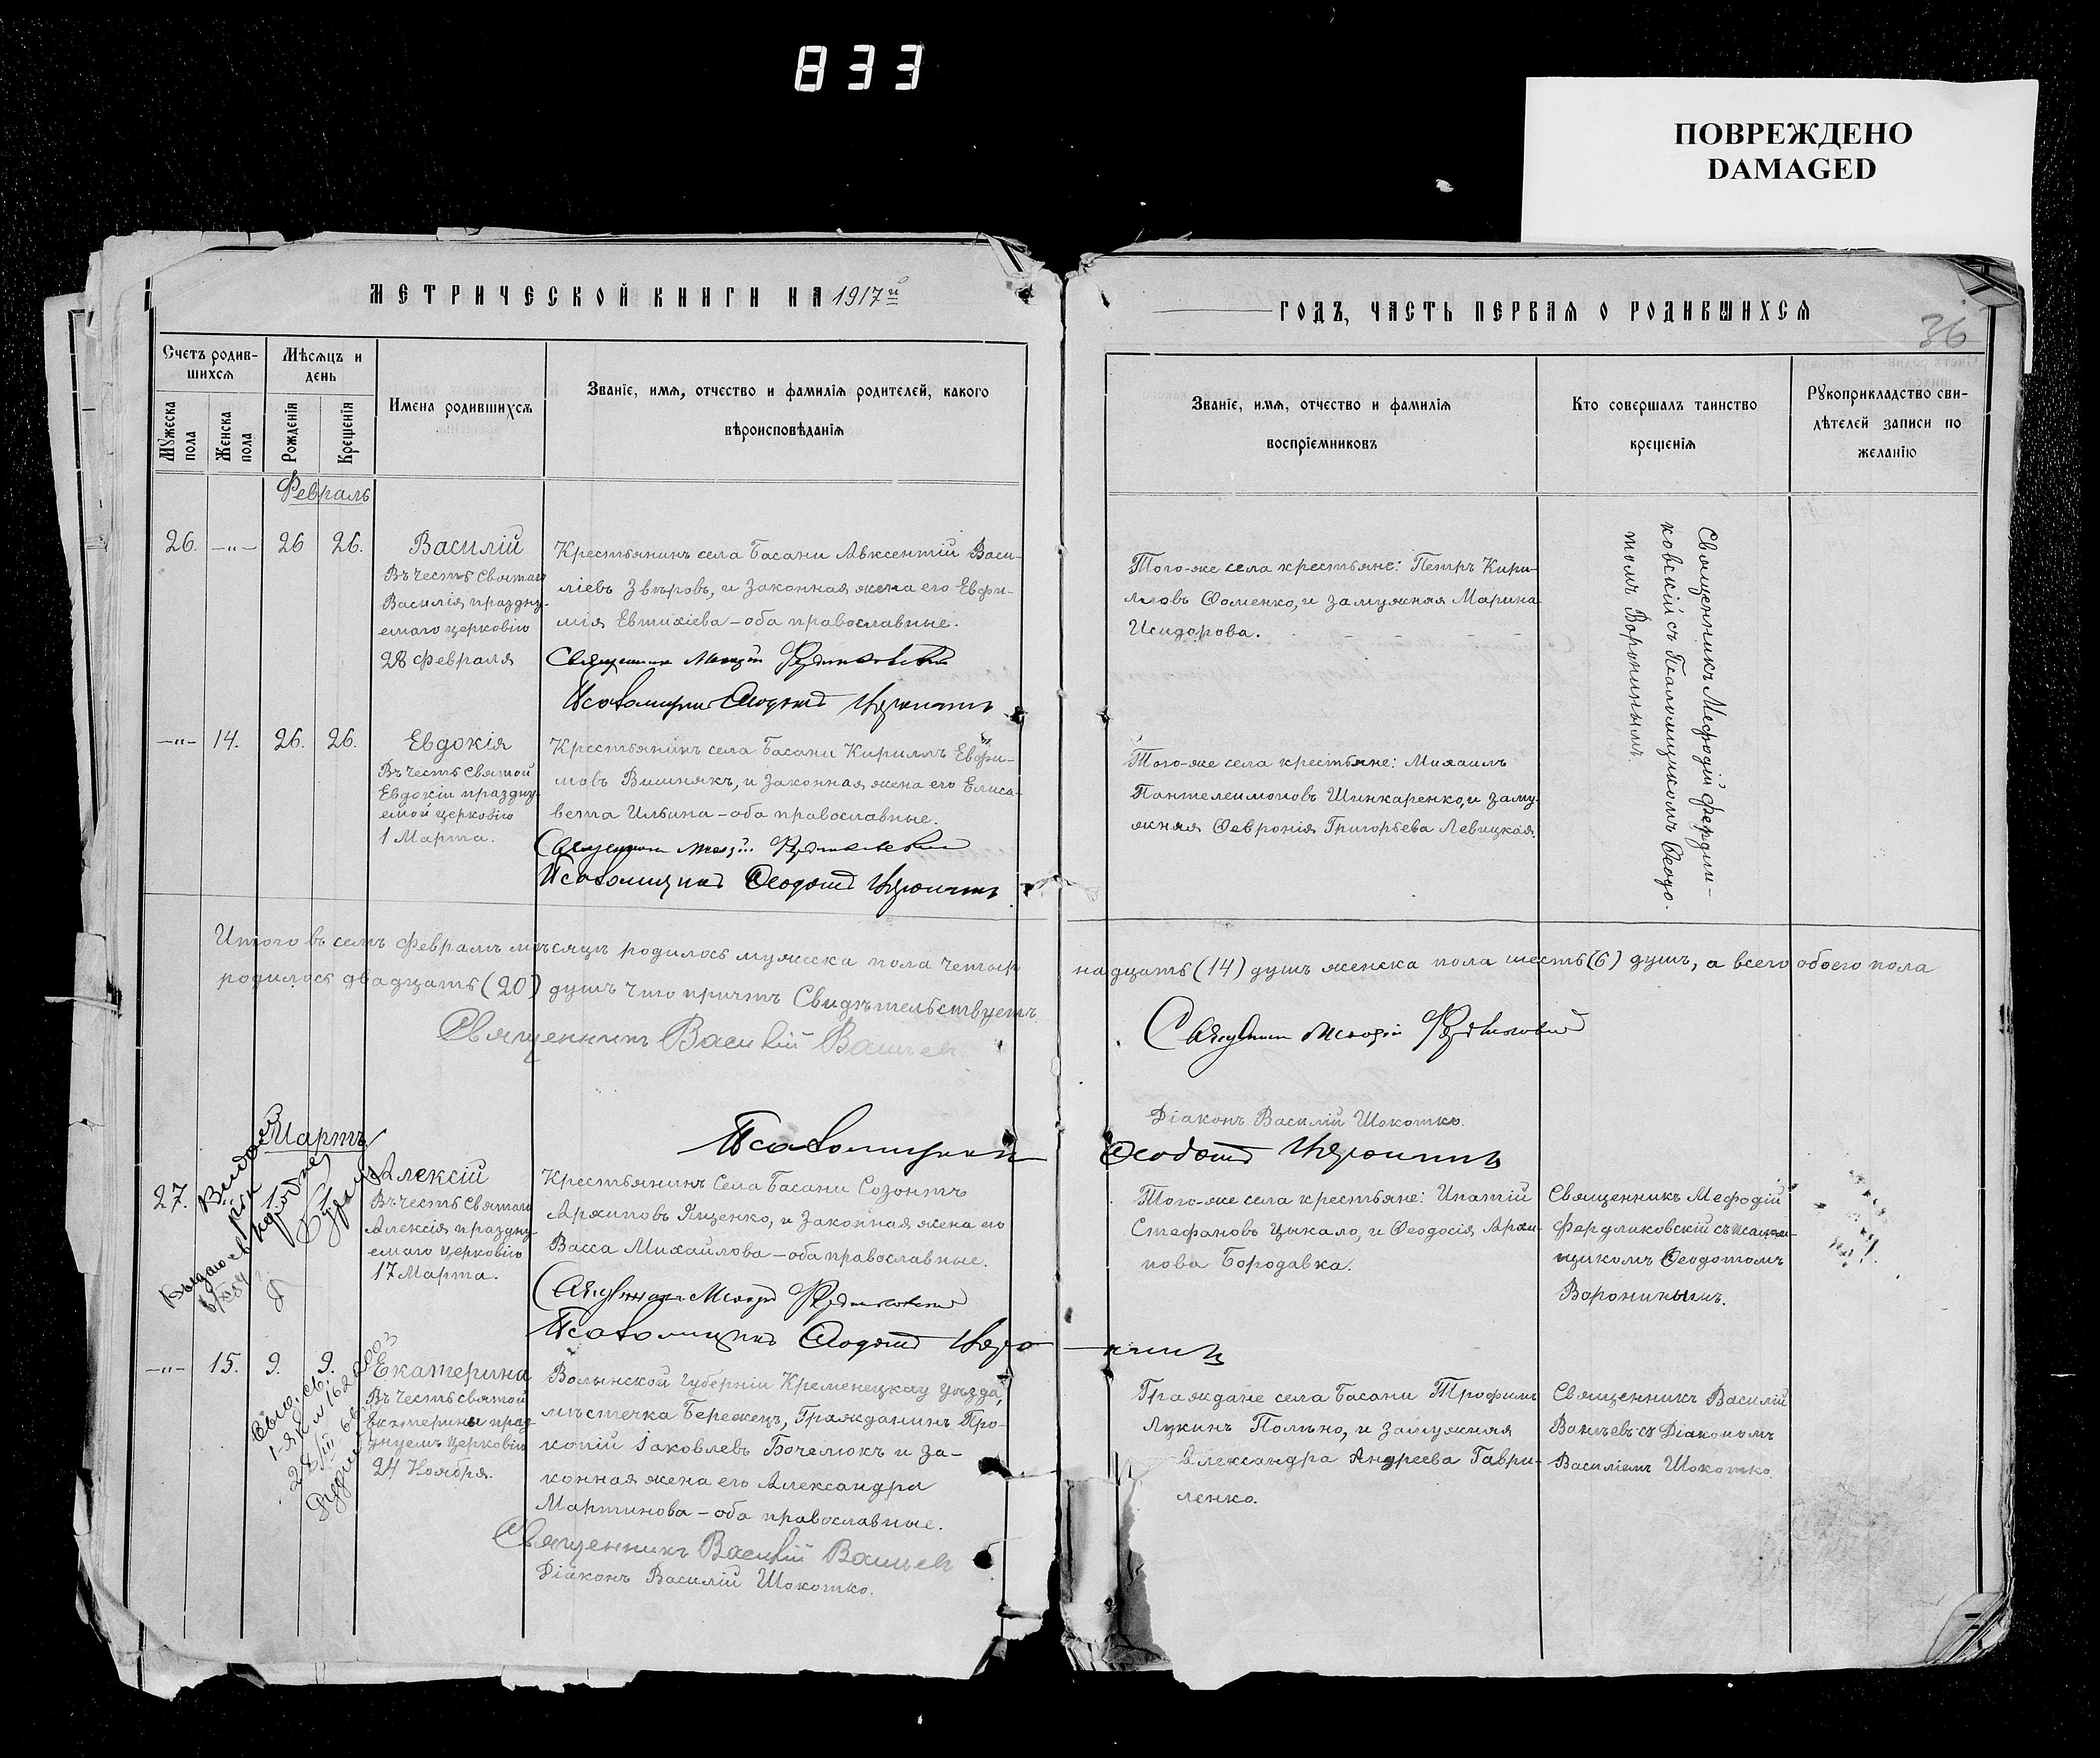 833
ПОВРЕЖДЕНО
DAMAGED
МЕТРИЧЕСКОЙ КНИГИ НА 1917й
ГОДЪ, ЧАСТЬ ПЕРВАЯ О РОДИВШИХСЯ
36
Счетъ родив-
шихся
Мѣсяцъ и
день
Мужеска
пола
Женска
пола
Рожденія
Крещенія
Имена родившихся
Званіе, имя, отчество и фамилія родителей, какого
вѣроисповѣданія
Званіе, имя, отчество и фамилія
воспріемниковъ
Кто совершалъ таинство
крещенія
Рукоприкладство сви-
дѣтелей записи по
желанію
Февраль
26. —"— 26 26.
Василій
Въ честь Святаго
Василія праздну-
емаго церковію
28 Февраля
Крестьянинъ села Басани Авксентій Васи-
ліевъ Звѣровъ, и законная жена его Евфи-
мія Евтихіева – оба православные.
Священникъ Мефодій Фердиковскій
Псаломщикъ Феодотъ Воронинъ
Того-же села крестьяне: Петръ Кири-
лловъ Фоменко, и замужняя Марина
Исидорова.
Священникъ Мефодій Фердли-
ковскій съ Псаломщикомъ Феодо-
томъ Воронинымъ.
—"— 14. 26. 26.
Евдокія
Въ честь Святой
Евдокіи праздну-
емой церковію
1 Марта.
Крестьянинъ села Басани Кириллъ Евфи-
мовъ Вишнякъ, и законная жена его Елиса-
вета Ильина – оба православные.
Священникъ Мефодій
Псаломщикъ Феодотъ Воронинъ
Того-же села крестьяне: Михаилъ
Пантелеимоновъ Шинкаренко, и заму-
жняя Февронія Григорьева Левицкая.
Итого въ семъ Февралѣ мѣсяцѣ родилось мужеска пола четыр
надцать (14) душъ женска пола шесть (6) душъ, а всего обоего пола
родилось двадцать (20) душъ что причтъ Свидѣтельствуетъ
Священникъ Василій
Священникъ Мефодій
Діаконъ Василій Шокотко.
Псаломщикъ Феодотъ Воронинъ
Мартъ
27.
Алексій
Въ честь Святаго
Алексія праздну-
емаго церковію
17 Марта.
Крестьянинъ Села Басани Созонтъ
Архиповъ Яценко, и законная жена его
Васса Михайлова – оба православные.
Священникъ Мефодій
Псаломщикъ Феодотъ Воро-
нинъ
Того-же села крестьяне: Ипатій
Стефановъ Цыкало, и Феодосія Архи-
пова Бородавка.
Священникъ Мефодій
Фердликовскій съ псалом-
щикомъ Феодотомъ
Воронинымъ.
—"— 15. 9. 9.
Екатерина
Въ честь святой
Екатерины праз-
днуемъ церковію
24 Ноября.
Волынской Губерніи Кременецкаго уѣзда,
мѣстечка Бережецъ, Гражданинъ Про-
копій Іаковлевъ Бочелюкъ и за-
конная жена его Александра
Мартинова – оба православные.
Священникъ Василій
Діаконъ Василій Шокотко.
Граждане села Басани Трофимъ
Лукинъ Польно, и замужняя
Александра Андреева Гаври-
ленко.
Священникъ Василій
съ Діакономъ
Василіемъ Шокотко.